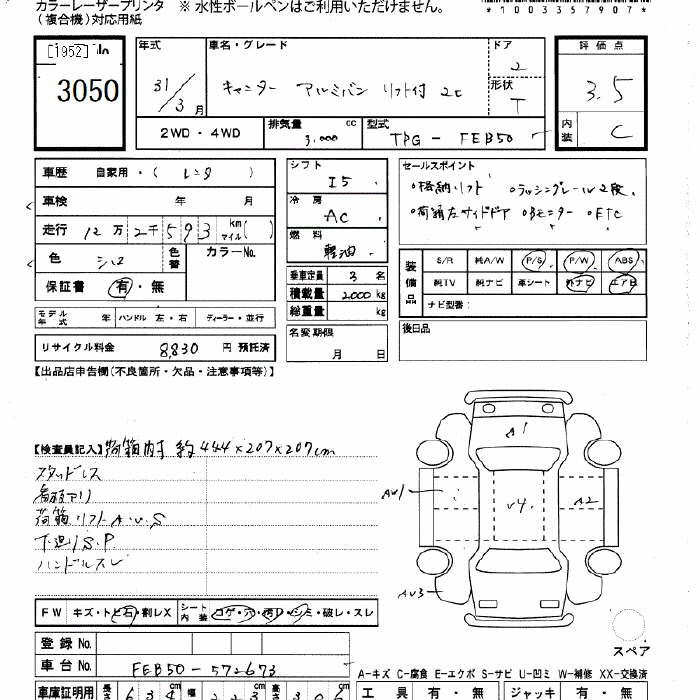 カラーレーザープリンタ ※ 水性ボールペンはご利用いただけません。
(複合機)対応用紙
*1003357907*
[1952]
3050
年式
車名・グレード
ドア
評価点
31/3月
キャンター アルミバン リフト付 2t
2
形状
T
3.5
2WD・4WD
排気量 cc
3,000
型式
TPG - FEB50
内装
C
車歴 自家用・( レンタ )
車検 年 月
走行 12万2千593 km マイル( )
色 シロ
色替
カラーNo.
保証書 有・無
モデル年式 年
ハンドル 左・右
ディーラー・並行
リサイクル料金 8,830 円 預託済
シフト
I5
冷房
AC
燃料
軽油
乗車定員 3 名
積載量 2,000 kg
総重量 kg
名変期限
月 日
セールスポイント
○格納リフト ○ラッシングレール2段
○荷箱左サイドドア ○Bモニター ○ETC
装備品
S/R 純A/W P/S P/W ABS
純TV 純ナビ 革シート 外ナビ エアB
ナビ型番:
後日品
【出品店申告欄(不良箇所・欠品・注意事項等)】
【検査員記入】 荷箱内寸 約444×207×207cm
スタッドレス
看板アリ
荷箱リフトA.U.S
下廻りS.P.
ハンドルスレ
A1
AW1
V4
A2
AW3
スペア
FW キズ・トビ石・割レX
シート内装 コゲ・穴・汚レ・シミ・破レ・スレ
登録No.
車台No. FEB50-572673
A-キズ C-腐食 E-エクボ S-サビ U-凹ミ W-補修 XX-交換済
車庫証明用 長さ 634cm 幅 223cm 高さ 306
工具 有・無 ジャッキ 有・無